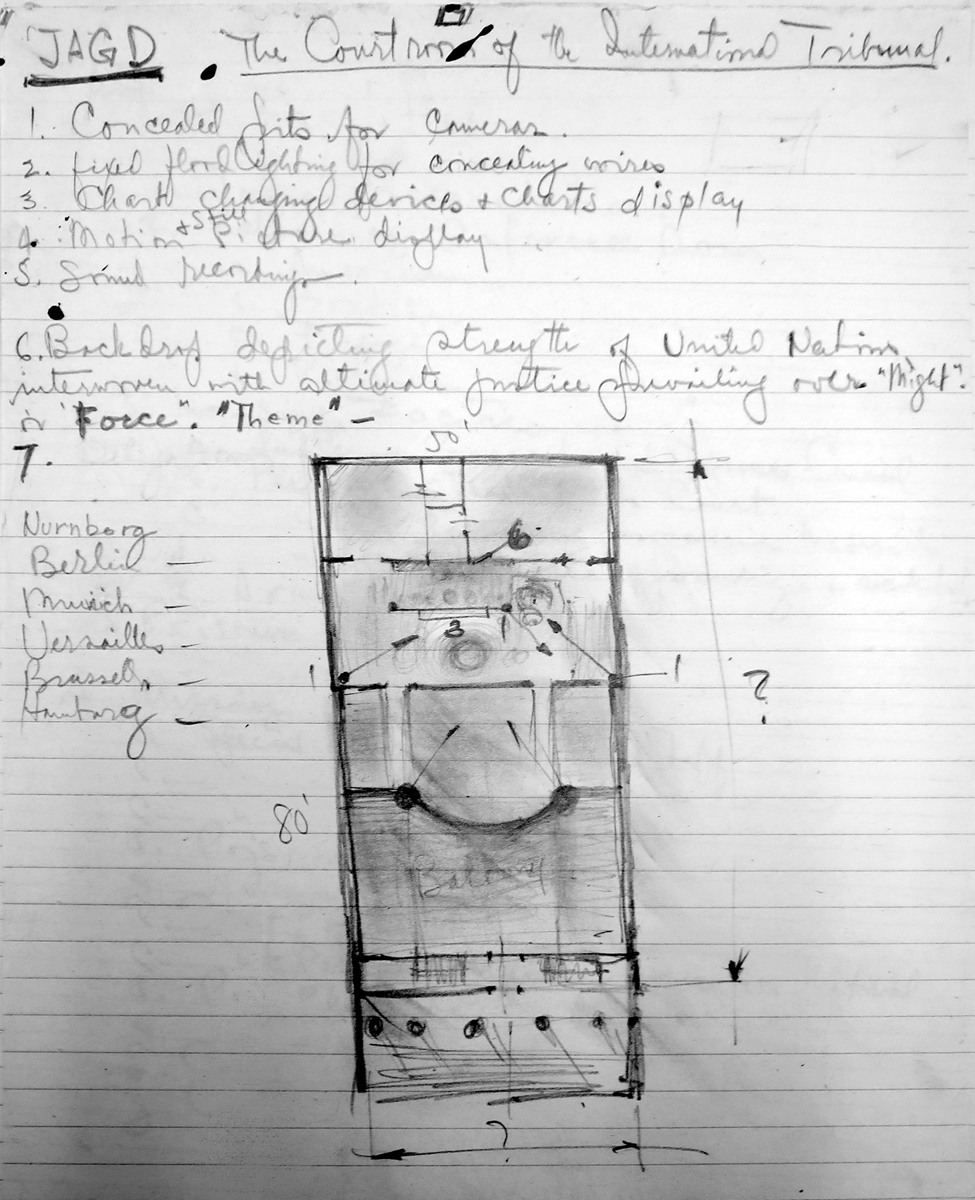 "JAGD" . The Courtroom of the International Tribunal.
1. Concealed pits for Cameras.
2. fixed flood lighting for concealing wires
3. Chart changing devices + charts display
4. Motion + Still Picture display
5. Sound recordings.
6. Backdrop depicting strength of United Nations,
interwoven with ultimate justice prevailing over "Might".
or "Force". "Theme" –
7.
50'
Nurnberg
Berlin —
Munich —
Versailles —
Brussels —
Hamburg —
6
3
1
1
1
?
80'
Balcony
?